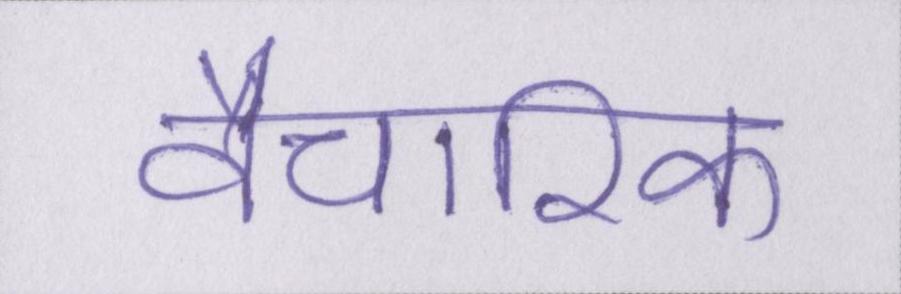 वैचारिक